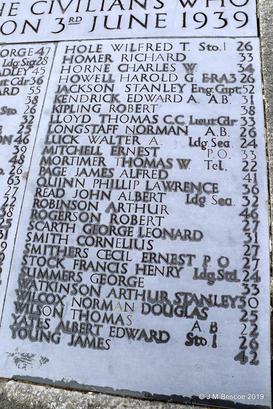 HE CIVILIANS WHO
ON 3RD JUNE 1939
EORGE 47
Ldg Sig 28
ADLEY 45
HOLE WILFRED T. Sto.1 26
HOMER RICHARD 33
HORNE CHARLES W. 34
HOWELL HAROLD G. ERA3 26
JACKSON STANLEY Eng.Capt. 52
KENDRICK EDWARD A. A.B. 31
KIPLING ROBERT
LLOYD THOMAS C.C. Lieut Cdr
LONGSTAFF NORMAN A.B.
LUCK WALTER A. Ldg Sea
MITCHELL ERNEST P.O.
MORTIMER THOMAS W. Tel.
PAGE JAMES ALFRED
QUINN PHILLIP LAWRENCE
READ JOHN ALBERT Ldg Sea.
ROBINSON ARTHUR
ROGERSON ROBERT
SCARTH GEORGE LEONARD
SMITH CORNELIUS
SMITHERS CECIL ERNEST P.O.
STOCK FRANCIS HENRY Ldg.Std.
SUMMERS GEORGE
WATKINSON ARTHUR STANLEY
WILCOX NORMAN DOUGLAS
WILSON THOMAS A.B.
YATES ALBERT EDWARD Sto 1
YOUNG JAMES 42
© J M Briscoe 2019